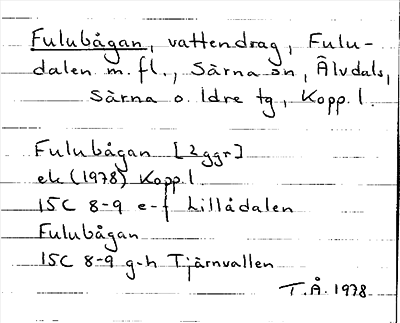 Fulubågan, vattendrag, Fulu-
dalen m. fl., Särna sn, Älvdals,
Särna o. Idre tg, Kopp. l.
Fulubågan [2ggr]
ek (1978) Kopp. l
15C 8-9 e-f Lillådalen
Fulubågan
15C 8-9 g-h Tjärnvallen
T.Å. 1978